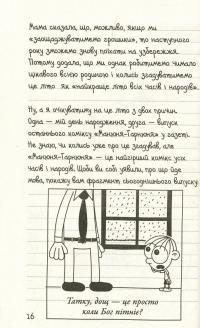 Мама сказала, що, можливо, якщо ми
«заощаджуватимемо грошики», то наступного
року зможемо знову поїхати на узбережжя.
Потому додала, що ми однак робитимемо чимало
цікавого всією родиною і колись згадуватимемо
це літо як «найкраще літо всіх часів і народів».
Ну, а я очікуватиму на це літо з двох причин.
Одна — мій день народження, друга — випуск
останнього коміксу «Манюня-Гарнюня» у газеті.
Не знаю, чи колись уже про це згадував, але
«Манюня-Гарнюня» — це найгірший комікс усіх
часів і народів. Щоби ви собі уявили, про що йде
мова, покажу вам фрагмент сьогоднішнього випуску:
Татку, дощ — це просто
коли Бог пітніє?
16